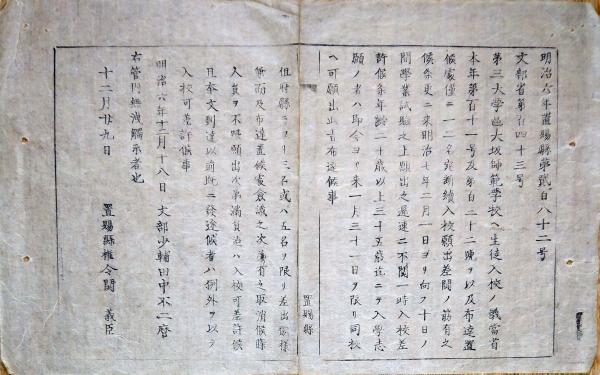 明治六年置賜縣第貳百八十二号
文部省第百四十三号
第三大學區大坂師範學校ヘ生徒入校ノ儀當省
本年第百十一号及第百二十二號ヲ以及布達置
候處僅ニ一二名宛断續入校願出差閊ノ筋有之
候条更ニ来明治七年二月一日ヨリ向フ十日ノ
間學業試驗之上願出之遅速ニ不関一時入校差
許候条年齢二十歳以上三十五歳迄ニテ入學志
願ノ者ハ即今ヨリ来一月三十一日ヲ限リ同校
ヘ可願出此旨布達候事
置賜縣
但府縣ニヨリ三名或ハ五名ヲ限リ差出候様
兼而及布達置候處僉議之次第有之取消候條
人員ヲ不限願出次第満員迄ハ入校可差許候
且本文到達以前既ニ發途候者ハ例外ヲ以テ
入校可差許候事
明治六年十二月十八日 文部少輔田中不二麿
右管内無洩觸示者也
十二月廿九日 置賜縣権令関 義臣